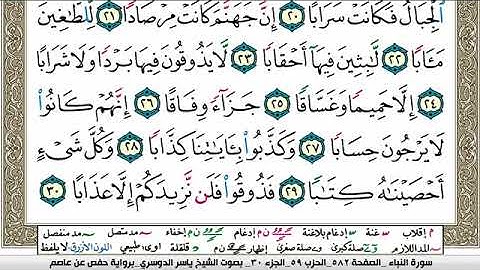 الْجِبَالُ فَكَانَتْ سَرَابًا ٢٠ إِنَّ جَهَنَّمَ كَانَتْ مِرْصَادًا ٢١ لِّلطَّٰغِينَ
مَـَٔابًا ٢٢ لَّٰبِثِينَ فِيهَآ أَحْقَابًا ٢٣ لَّا يَذُوقُونَ فِيهَا بَرْدًا وَلَا شَرَابًا
٢٤ إِلَّا حَمِيمًا وَغَسَّاقًا ٢٥ جَزَآءً وِفَاقًا ٢٦ إِنَّهُمْ كَانُوا۟
لَا يَرْجُونَ حِسَابًا ٢٧ وَكَذَّبُوا۟ بِـَٔايَٰتِنَا كِذَّابًا ٢٨ وَكُلَّ شَىْءٍ
أَحْصَيْنَٰهُ كِتَٰبًا ٢٩ فَذُوقُوا۟ فَلَن نَّزِيدَكُمْ إِلَّا عَذَابًا ٣٠
م إقلاب غنة إدغام بلاغنة إدغام إخفاء مد متصل مد منفصل
المد اللازم صلة كبرى وصلة صغرى إظهار قلقلة طبيعي اللون الأزرق لا يلفظ
سورة النباء _الصفحة ٥٨٢_ الحزب ٥٩_الجزء ٣٠_ بصوت الشيخ ياسر الدوسري_برواية حفص عن عاصم